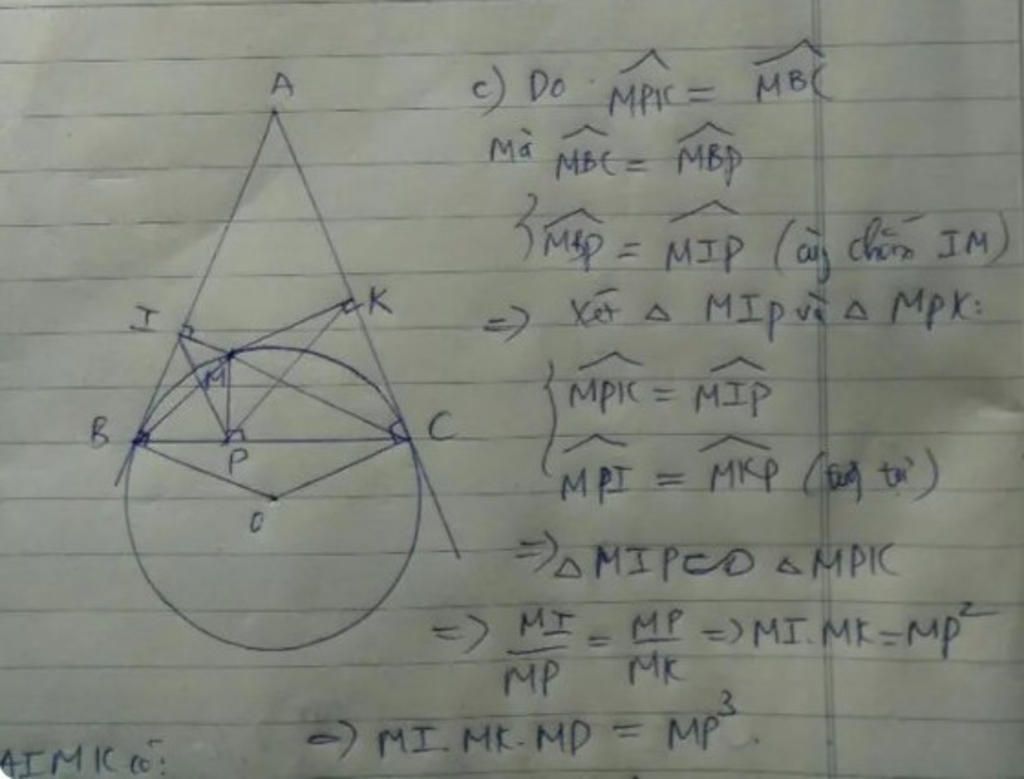 A
I
K
M
B
P
C
O
c) Do \widehat{MPK} = \widehat{MBC}
Mà \widehat{MBC} = \widehat{MBP}
} \widehat{MBP} = \widehat{MIP} (cùng chắn IM)
=> Xét △ MIP và △ MPK:
{ \widehat{MPK} = \widehat{MIP}
\widehat{MPI} = \widehat{MKP} (tương tự)
=> △ MIP ∽ △ MPK
=> MI/MP = MP/MK => MI.MK = MP²
=> MI.MK.MP = MP³.
AIMK có: